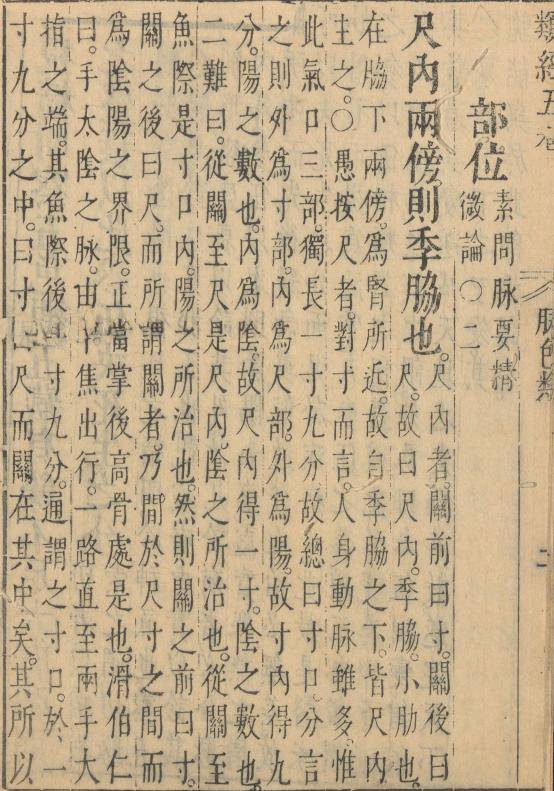 類經五卷 脉色類 二
部位
素問脉要精
微論○二
尺內兩傍則季脇也。
尺內者。關前曰寸。關後曰
尺。故曰尺內。季脇。小肋也。
在脇下兩傍。爲腎所近。故自季脇之下。皆尺內
主之。○愚按尺者。對寸而言。人身動脉雖多。惟
此氣口三部。獨長一寸九分。故總曰寸口。分言
之則外爲寸部。內爲尺部。外爲陽。故寸內得九
分。陽之數也。內爲陰。故尺內得一寸。陰之數也。
二難曰。從關至尺是尺內。陰之所治也。從關至
魚際是寸口內。陽之所治也。然則關之前曰寸。
關之後曰尺。而所謂關者。乃間於尺寸之間而
爲陰陽之界限。正當掌後高骨處是也。滑伯仁
曰。手太陰之脉。由中焦出行。一路直至兩手大
指之端。其魚際後寸九分。通謂之寸口。於一
寸九分之中。曰寸尺而關在其中矣。其所以